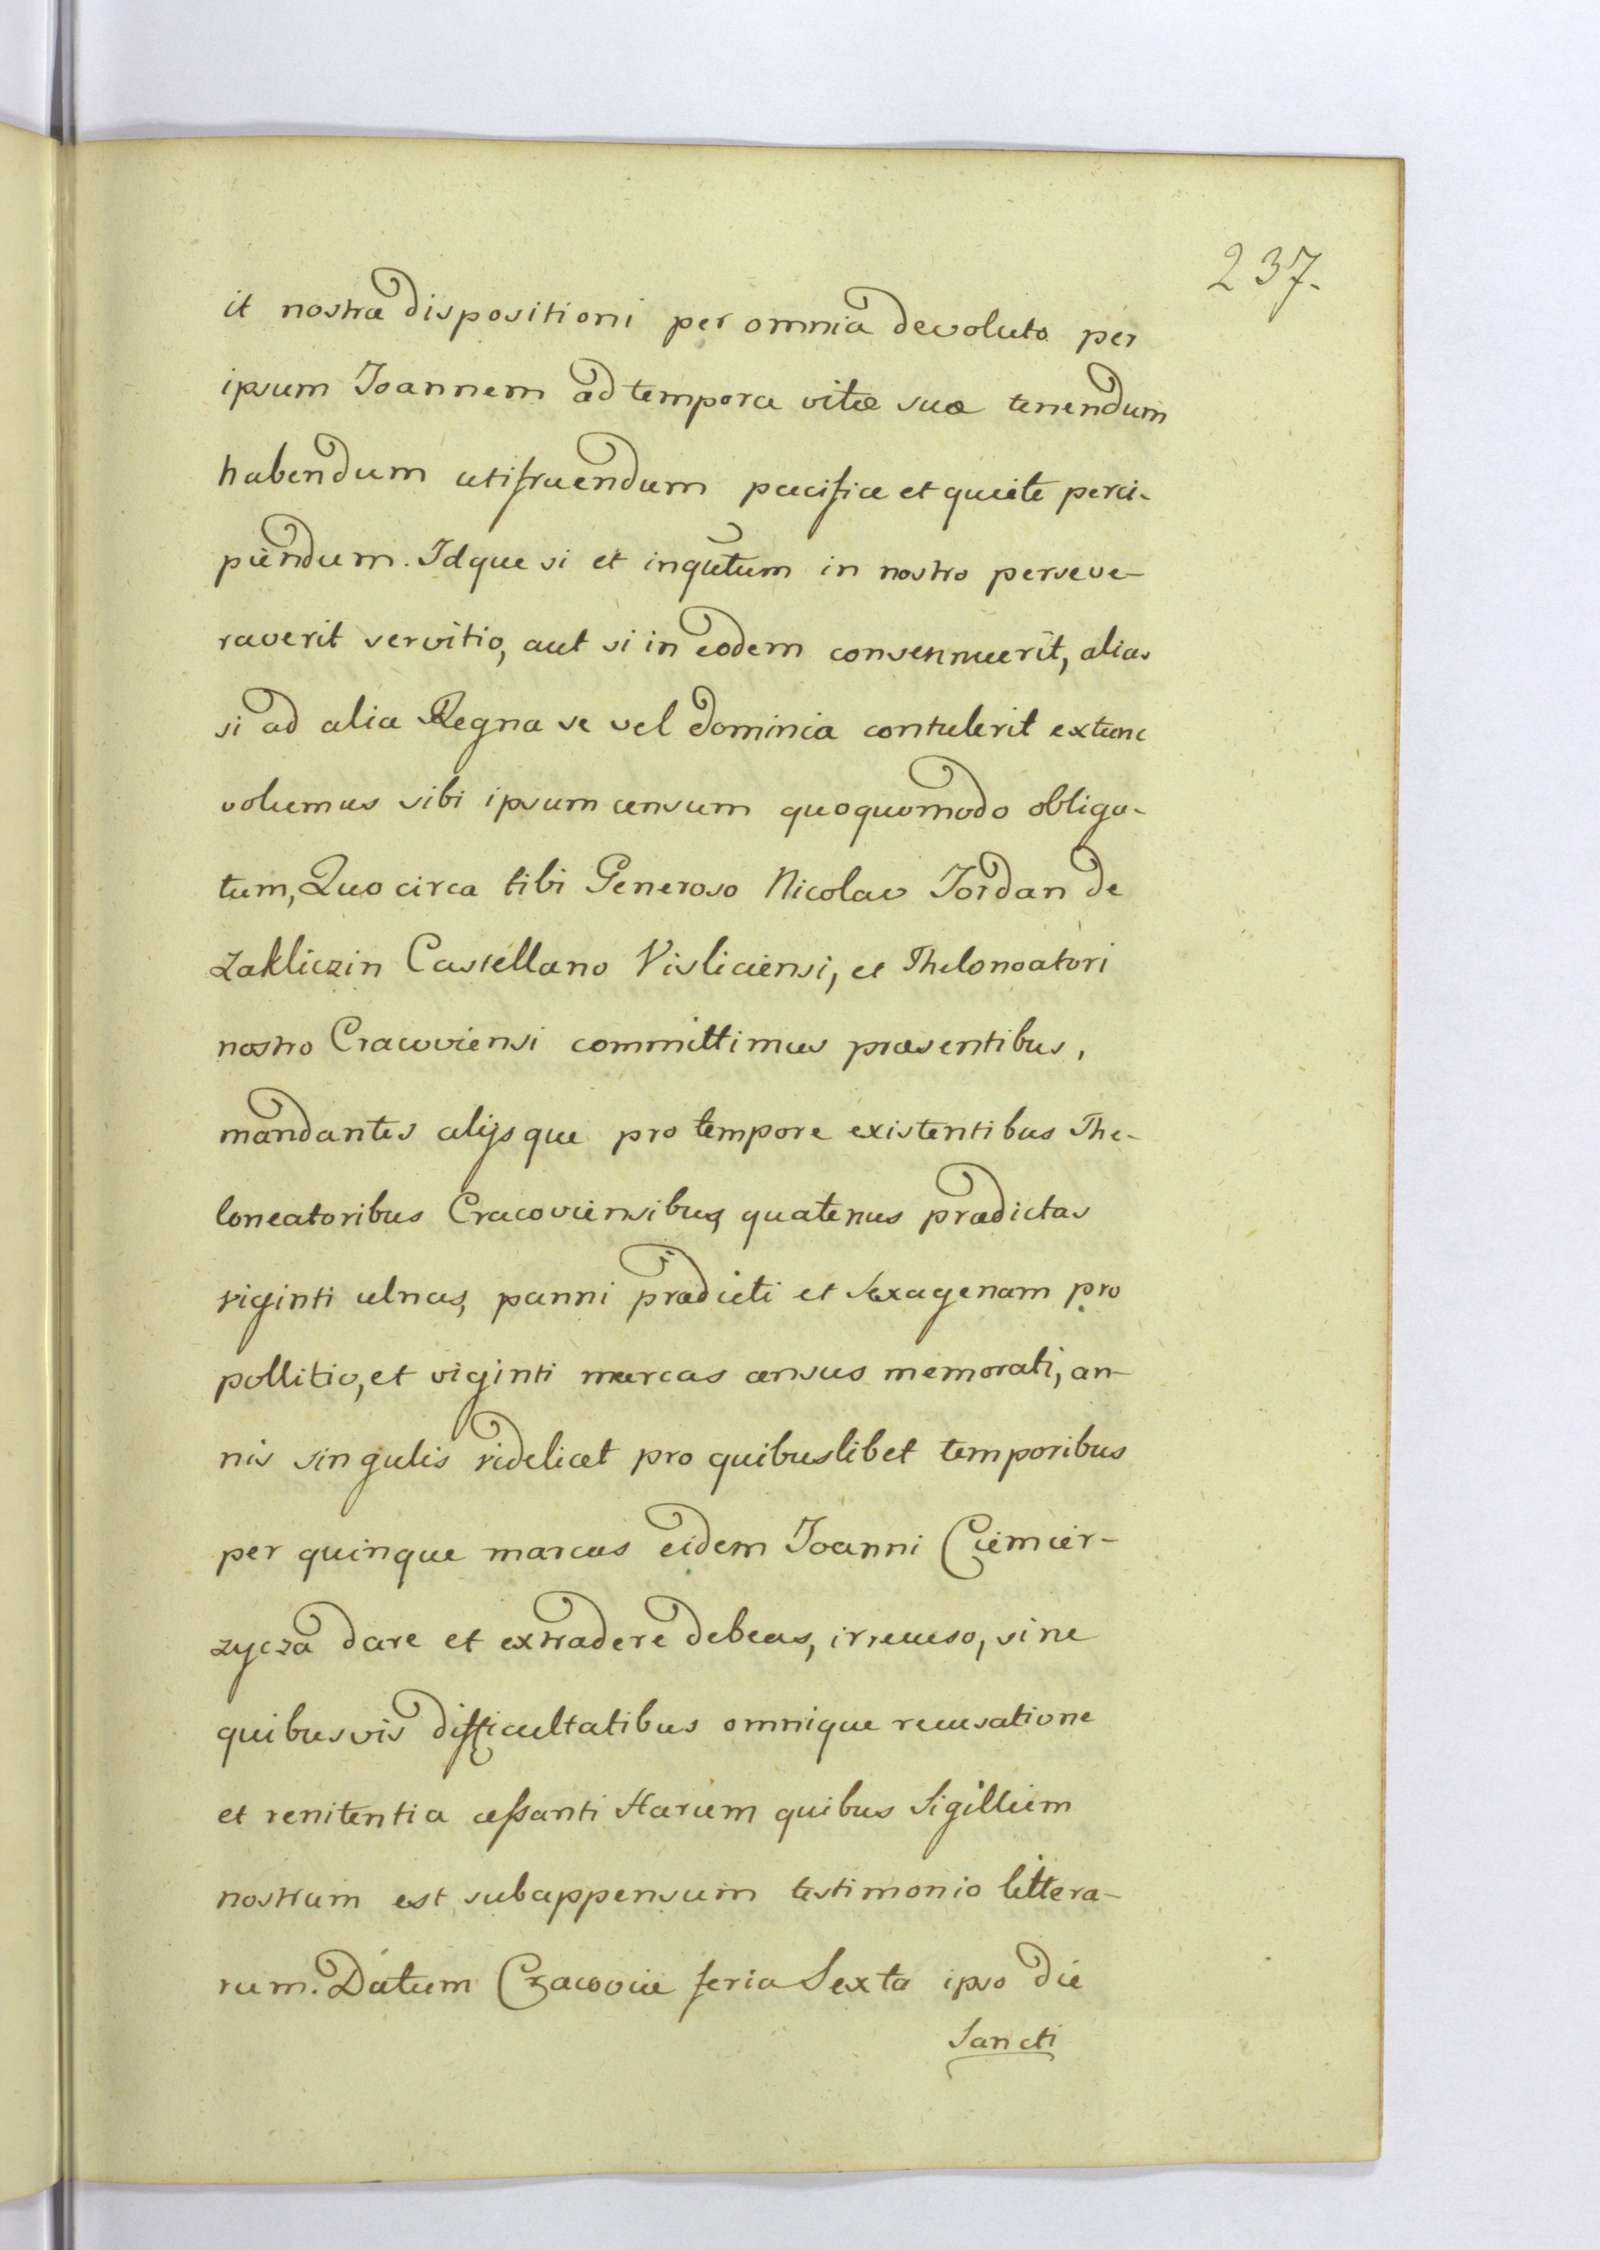 237.
it nostræ dispositioni per omnia devoluto per
ipsum Joannem ad tempora vitæ suæ tenendum
habendum utifruendum pacifice et quiete perci-
piendum. Idque si et inqutum in nostro perseve-
raverit servitio, aut si in eodem consennuerit, alias
si ad alia Regna se vel dominia contulerit extunc
volumus sibi ipsum censum quoquomodo obliga-
tum, Quocirca tibi Generoso Nicolao Jordan de
Zakliczin Castellano Visliciensi, et Thelonoatori
nostro Cracoviensi committimus præsentibus,
mandantes alijsque pro tempore existentibus The-
loneatoribus Cracoviensibus, quatenus prædictas
viginti ulnas, panni prædicti et Sexagenam pro
pollitio, et viginti marcas census memorati, an-
nis singulis videlicet pro quibuslibet temporibus
per quinque marcas eidem Joanni Ciemier-
zycza dare et extradere debeas, irrecuso, sine
quibusvis difficultatibus omnique recusatione
et renitentia cessanti Harum quibus Sigillum
nostrum est subappensum testimonio littera-
rum. Datum Cracoviæ feria Sexta ipso die
Sancti